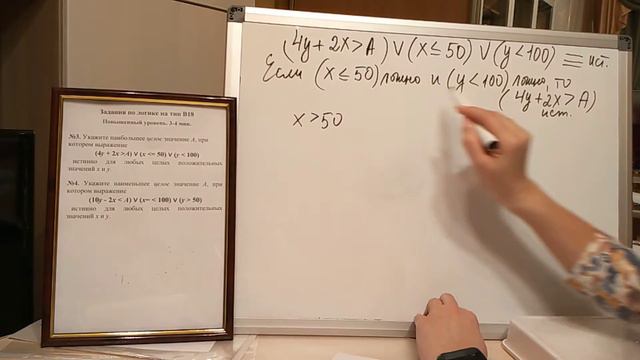 (4y+2x>A) ∨ (x≤50) ∨ (y<100) ≡ ист.
Если (x≤50) ложно и (y<100) ложно, то
(4y+2x>A)
ист.
x>50
Задания по логике на тип B18
Повышенный уровень. 3-4 мин.
№3. Укажите наибольшее целое значение A, при
котором выражение
(4y + 2x >A) ∨ (x <= 50) ∨ (y < 100)
истинно для любых целых положительных
значений x и y.
№4. Укажите наименьшее целое значение A, при
котором выражение
(10y - 2x < A) ∨ (x= < 100) ∨ (y > 50)
истинно для любых целых положительных
значений x и y.